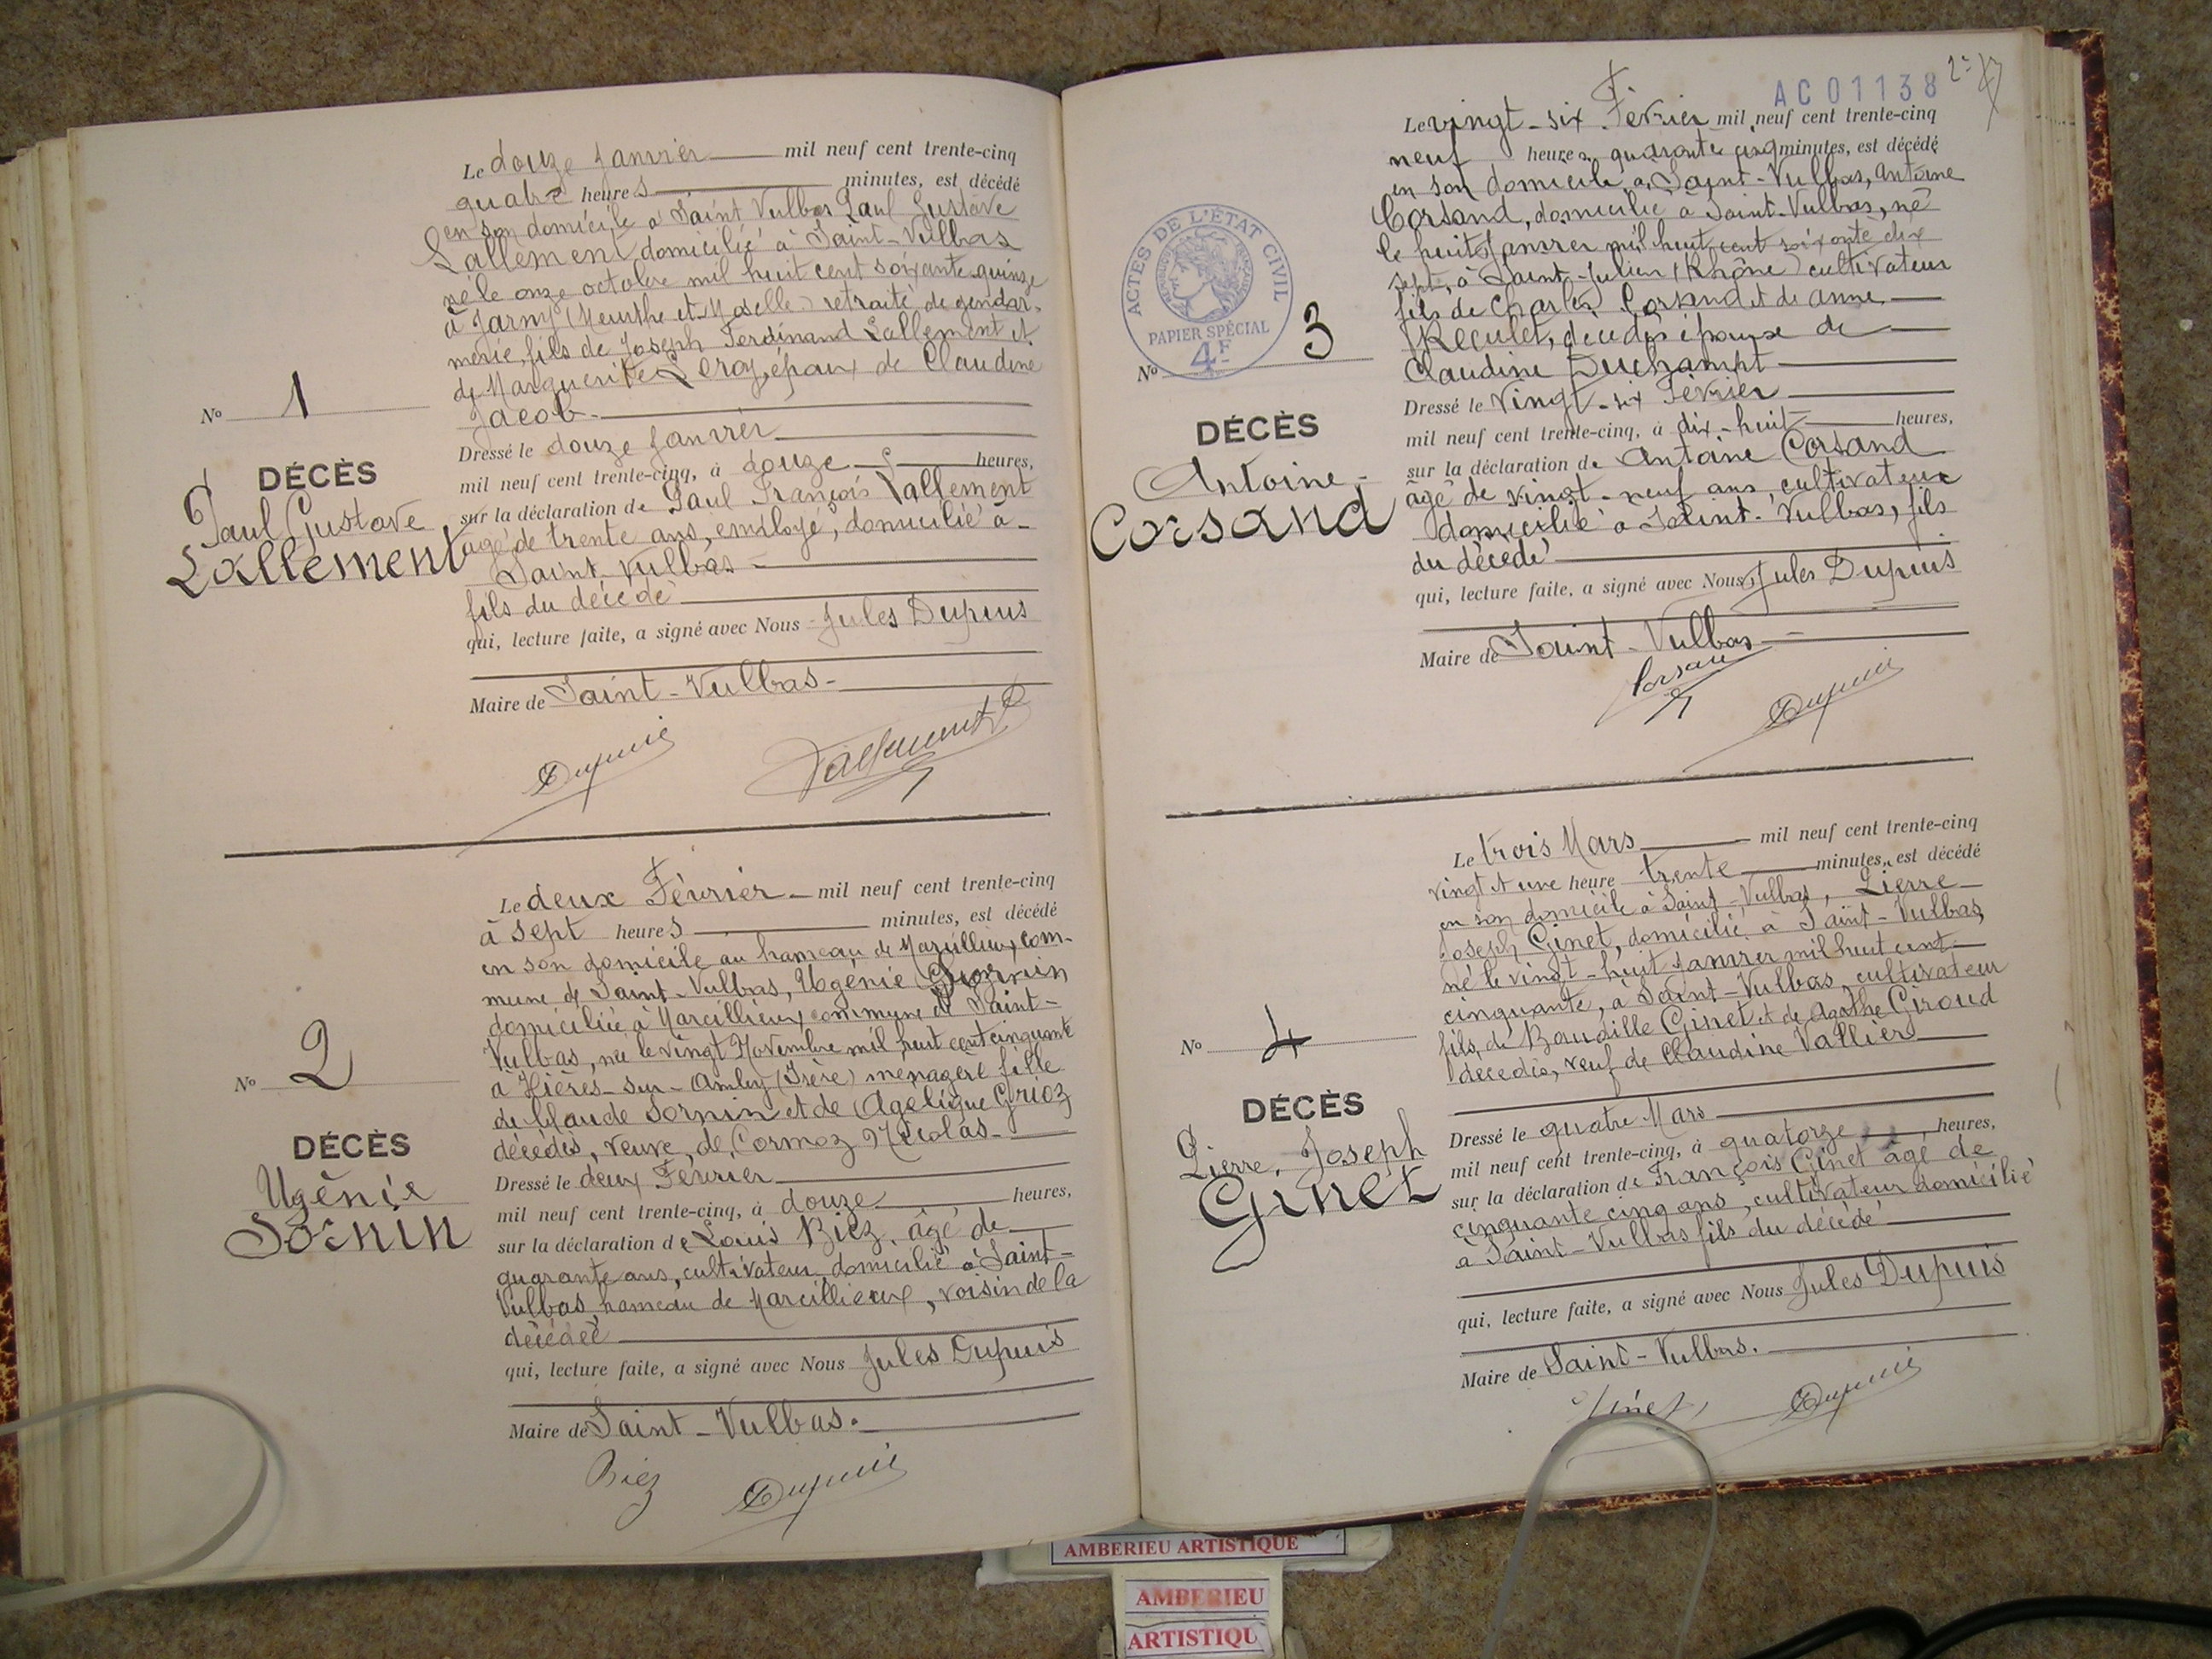 Le douze Janvier mil neuf cent trente-cinq
quatre heures minutes, est décédé
en son domicile à Saint Vulbas Paul Gustave
Lallement domicilié à Saint-Vulbas
né le onze octobre mil huit cent soixante quinze
à Jarny (Meurthe et Moselle) retraité de gendar-
merie, fils de Joseph Ferdinand Lallement et
de Marguerite Leroy, époux de Claudine
Jacob.
Dressé le douze Janvier
mil neuf cent trente-cinq, à douze heures,
sur la déclaration de Paul François Lallement
âgé de trente ans, employé, domicilié à
Saint Vulbas
fils du décédé
qui, lecture faite, a signé avec Nous Jules Dupuis
Maire de Saint-Vulbas
Dupuis Lallement
No 1
DÉCÈS
Paul Gustave
Lallement
Le deux Février mil neuf cent trente-cinq
à sept heures minutes, est décédé
en son domicile au hameau de Marcillieux, com-
mune de Saint-Vulbas, Ugénie
domiciliée à Marcillieux commune de Saint-
Vulbas, née le vingt Novembre mil huit cent cinquante
à Hières-sur-Amby (Isère) ménagère fille
de Claude Sornin et de Agelique Grioz
décédés, veuve de Cormoz Nicolas
Dressé le deux Février
mil neuf cent trente-cinq, à douze heures,
sur la déclaration de Louis Biez, âgé de
quarante ans, cultivateur domicilié à Saint-
Vulbas hameau de Marcillieux, voisin de la
décédée
qui, lecture faite, a signé avec Nous Jules Dupuis
Maire de Saint-Vulbas.
Biez Dupuis
No 2
DÉCÈS
Ugénie
Sornin
AC01138
Le vingt-six Février mil neuf cent trente-cinq
neuf heures quarante cinq minutes, est décédé
en son domicile à Saint-Vulbas, Antoine
Corsand, domicilié à Saint-Vulbas, né
le huit Janvier mil huit cent soixante dix
sept, à Saint-Julien (Rhône) cultivateur
fils de Charles Corsand et de Anne
Reculet, décédés époux de
Claudine Duchampt
Dressé le Vingt-six Février
mil neuf cent trente-cinq, à dix-huit heures,
sur la déclaration de Antoine Corsand
âgé de vingt-neuf ans, cultivateur
domicilié à Saint-Vulbas, fils
du décédé
qui, lecture faite, a signé avec Nous, Jules Dupuis
Maire de Saint-Vulbas
Corsand Dupuis
ACTES DE L'ÉTAT CIVIL
RÉPUBLIQUE FRANÇAISE
PAPIER SPÉCIAL
4F
No 3
DÉCÈS
Antoine
Corsand
Le trois Mars mil neuf cent trente-cinq
vingt et une heure trente minutes, est décédé
en son domicile à Saint-Vulbas, Pierre
Joseph Ginet, domicilié à Saint-Vulbas,
né le vingt-huit Janvier mil huit cent
cinquante, à Saint-Vulbas, cultivateur
fils de Baudille Ginet et de Agathe Giroud
décédés, veuf de Claudine Vallier
Dressé le quatre Mars
mil neuf cent trente-cinq, à quatorze heures,
sur la déclaration de François Ginet âgé de
cinquante cinq ans, cultivateur domicilié
à Saint-Vulbas fils du décédé
qui, lecture faite, a signé avec Nous Jules Dupuis
Maire de Saint-Vulbas.
Ginet Dupuis
No 4
DÉCÈS
Pierre, Joseph
Ginet
AMBERIEU ARTISTIQUE
AMBERIEU
ARTISTIQU